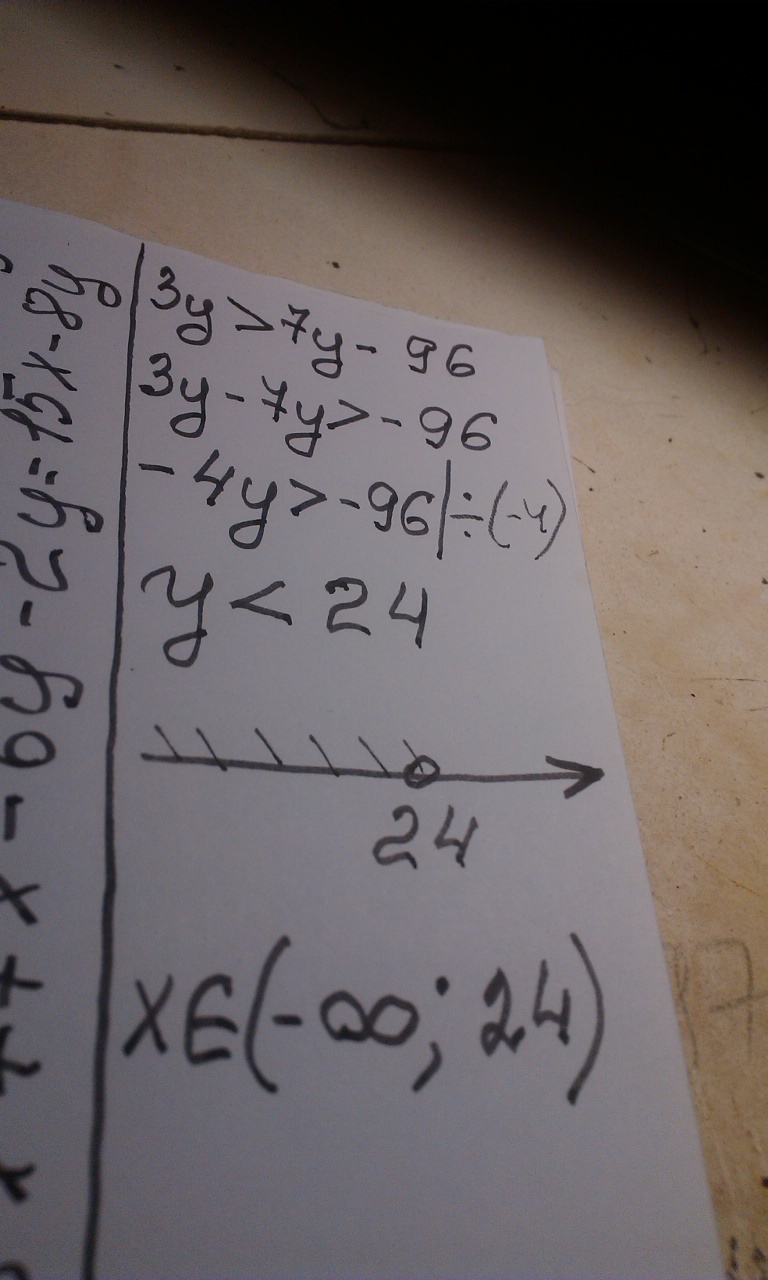 3y > 7y - 96
3y - 7y > - 96
- 4y > - 96 | ÷ (-4)
y < 24
24
x∈(-∞; 24)
- 6y - 2y = 15x - 8y